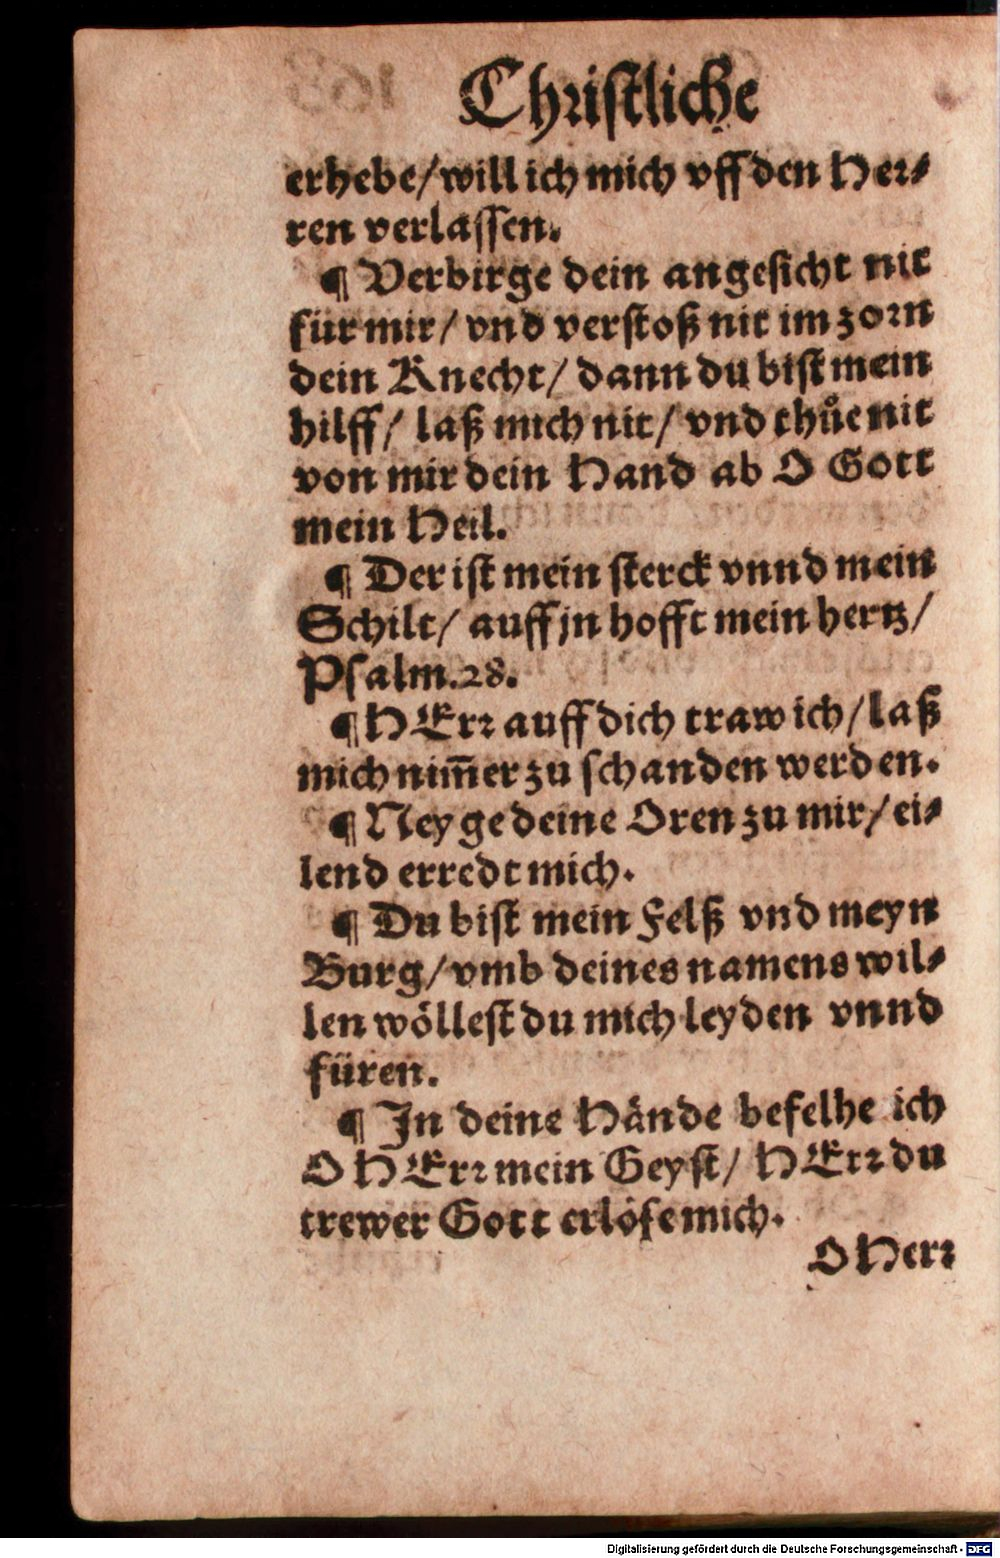 Christliche
erhebe/ will ich mich vff den Her⸗
ren verlassen.
¶ Verbirge dein angesicht nit
für mir/ vnd verstoß nit im zorn
dein Knecht/ dann du bist mein
hilff/ laß mich nit/ vnd thuͤe nit
von mir dein Hand ab O Gott
mein Heil.
¶ Der ist mein sterck vnnd mein
Schilt/ auff jn hofft mein hertz/
Psalm.28.
¶ HErr auff dich traw ich/ laß
mich nim̃er zu schanden werden.
¶ Neyge deine Oren zu mir/ ei⸗
lend erredt mich.
¶ Du bist mein Felß vnd meyn
Burg/ vmb deines namens wil⸗
len wöllest du mich leyden vnnd
füren.
¶ In deine Hände befelhe ich
O HErr mein Geyst/ HErr du
trewer Gott erlöse mich.
O Herr
Digitalisierung gefördert durch die Deutsche Forschungsgemeinschaft - DFG